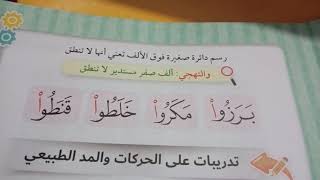 رسم دائرة صغيرة فوق الألف تعني أنها لا تنطق
والتهجي: ألف صفر مستدير لا تنطق
بَرَزُوا۟ مَكَرُوا۟ خَلَطُوا۟ قَنَطُوا۟
تدريبات على الحركات والمد الطبيعي